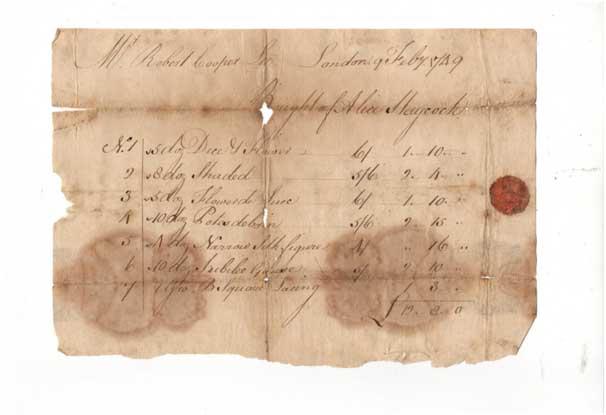 Mr Robert Cooper London 9 Feby
Bought of Alice Haycock
No 1 5 doz Dice & Flower 6/ 1 - 10 - "
2 8 doz Shaded 5/6 2 - 4 - "
3 5 doz Flowerd 6/ 1 - 10 - "
4 10 doz 5/6 2 - 15 "
5 4 doz Narrow Silk 4/ " 16 "
6 10 doz 5/ 2 - 10 "
7 Gro B Square Lacing 1 3 "
12 - 8 - 0